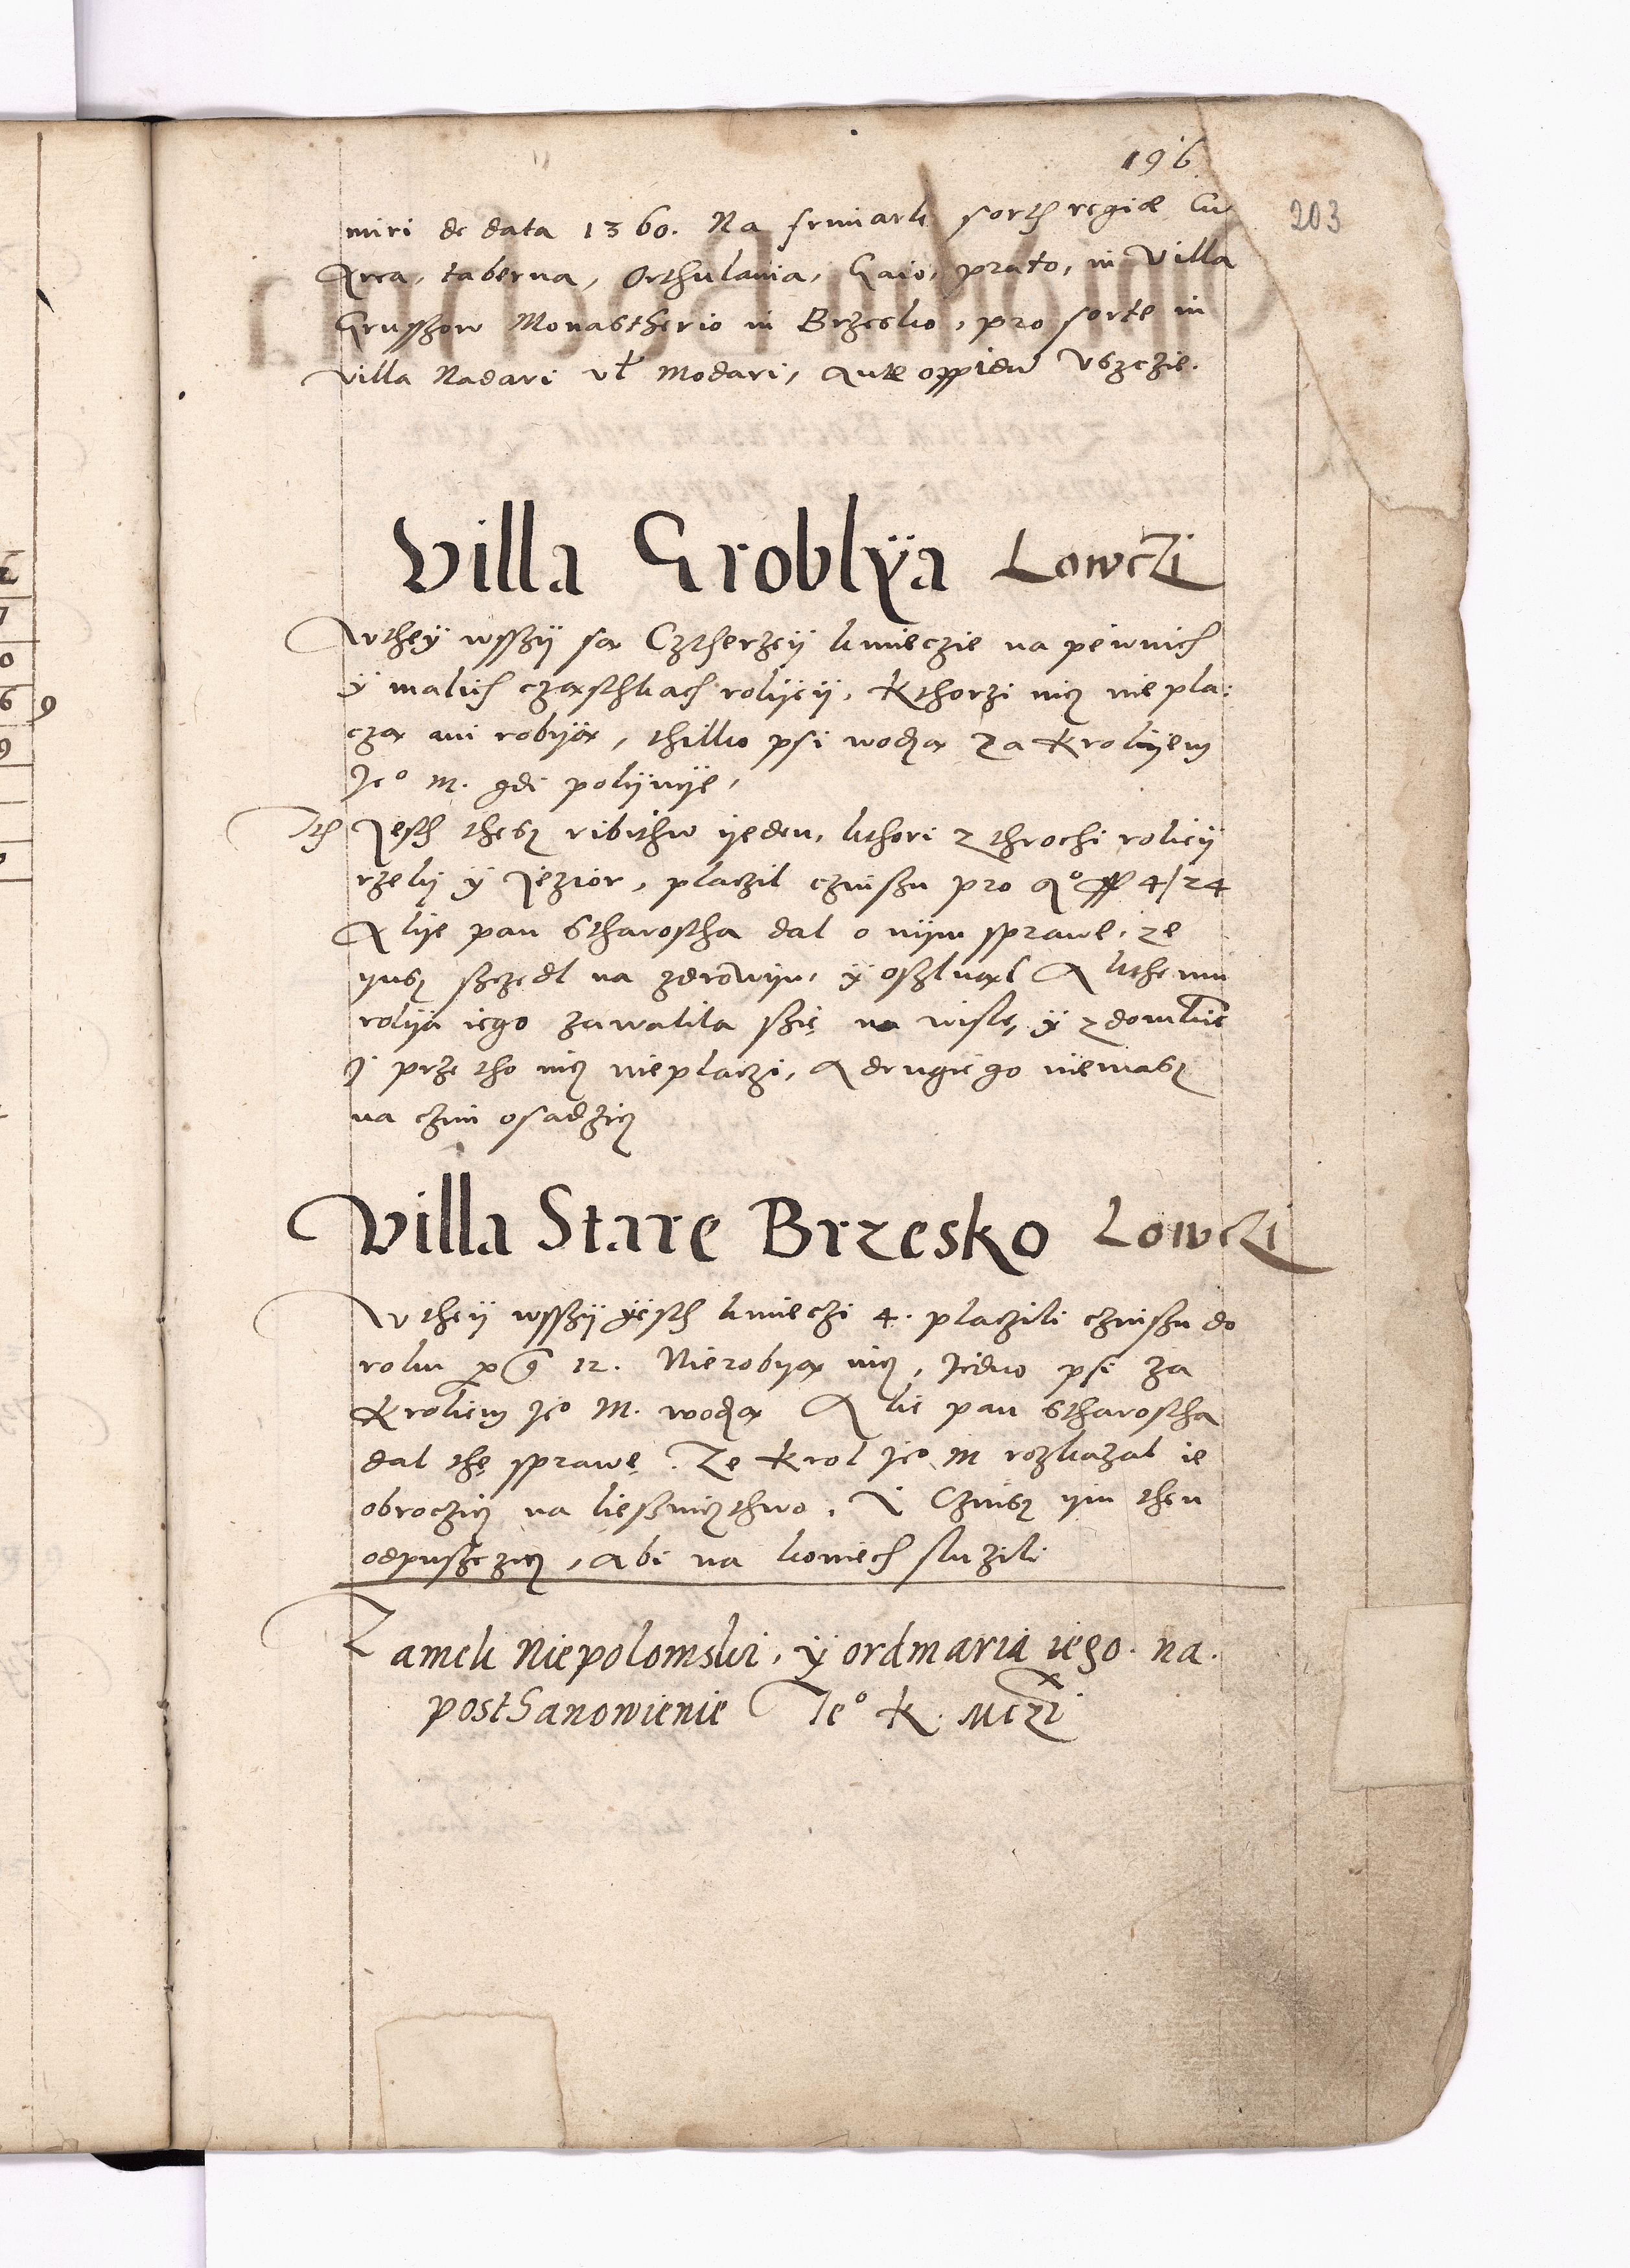 196
203
miri de data 1360. Na frimark sorth regiæ Cu
Area, taberna, Orthulania, Gaio, prato, in Villa
Grusszow Monastherio in Brzesko, pro sorte in
villa Nadari vł Modari, Ante oppidū Vszczie.
Villa Groblÿa Lowczi
W they wsszÿ są Cztherzeÿ kmieczie na pewnich
ÿ malich cząsthkach rolÿeÿ, Kthorzi nicz nie pla:
czą ani robÿą, thilko psi wodzą za Krolÿem
Je° M. gdi polÿuÿe,
Ith Jesth thesz ribithw ÿeden, kthori z throchi rolieÿ
rzekÿ ÿ Jezior, placzil czinszu pro A° 4/24
Alÿe pan Stharostha dal o nÿm sprawę, ze
ÿusz szczedl na zdrowÿu, ÿ oszlnął A kthemu
rolÿa iego zawalila szię na wislę, ÿ z domkiē
J przetho nicz nieplaczi, A drugiego niemasz
na czim osadzicz
Villa Stare Brzesko Lowczi
W theÿ wsszÿ ÿesth kmieczi 4. placzili czinszu do
roku 12. Nie robyą nicz, Jedno psi za
Kroliem Je° M. wodzą Alie pan Stharostha
dal thę sprawę. Ze Krol Je° M rozkazal ie
obroczicz na lieszniczthwo, I Czinsz ÿm then
odpusczicz, Abi na koniech sluzili
Zamek Niepolomski, ÿ ordinaria iego. na.
posthanowienie Je° K. Mczi